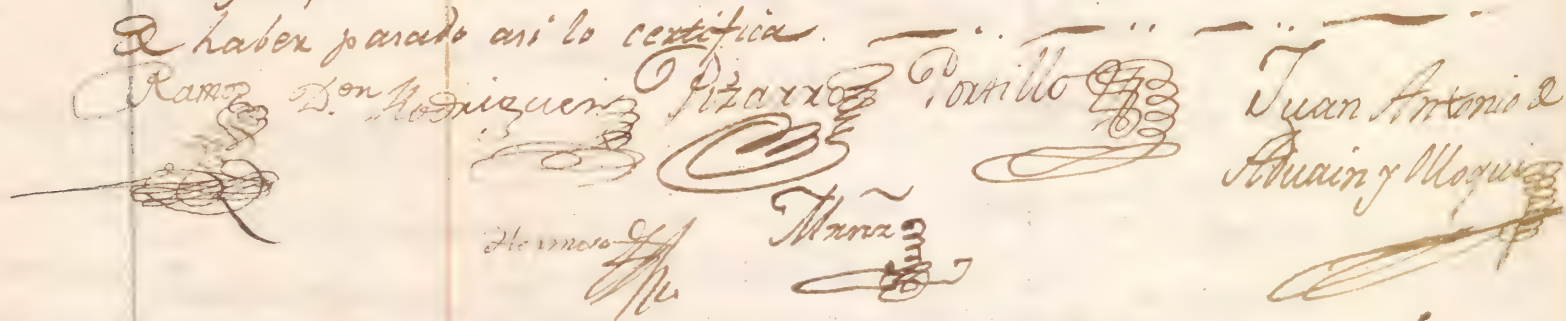 de haber pasado asi lo certifica.
Ramos Dn. Rodriguez Pizarro Portillo Juan Antonio de
Aduain y Moqui
Hermoso